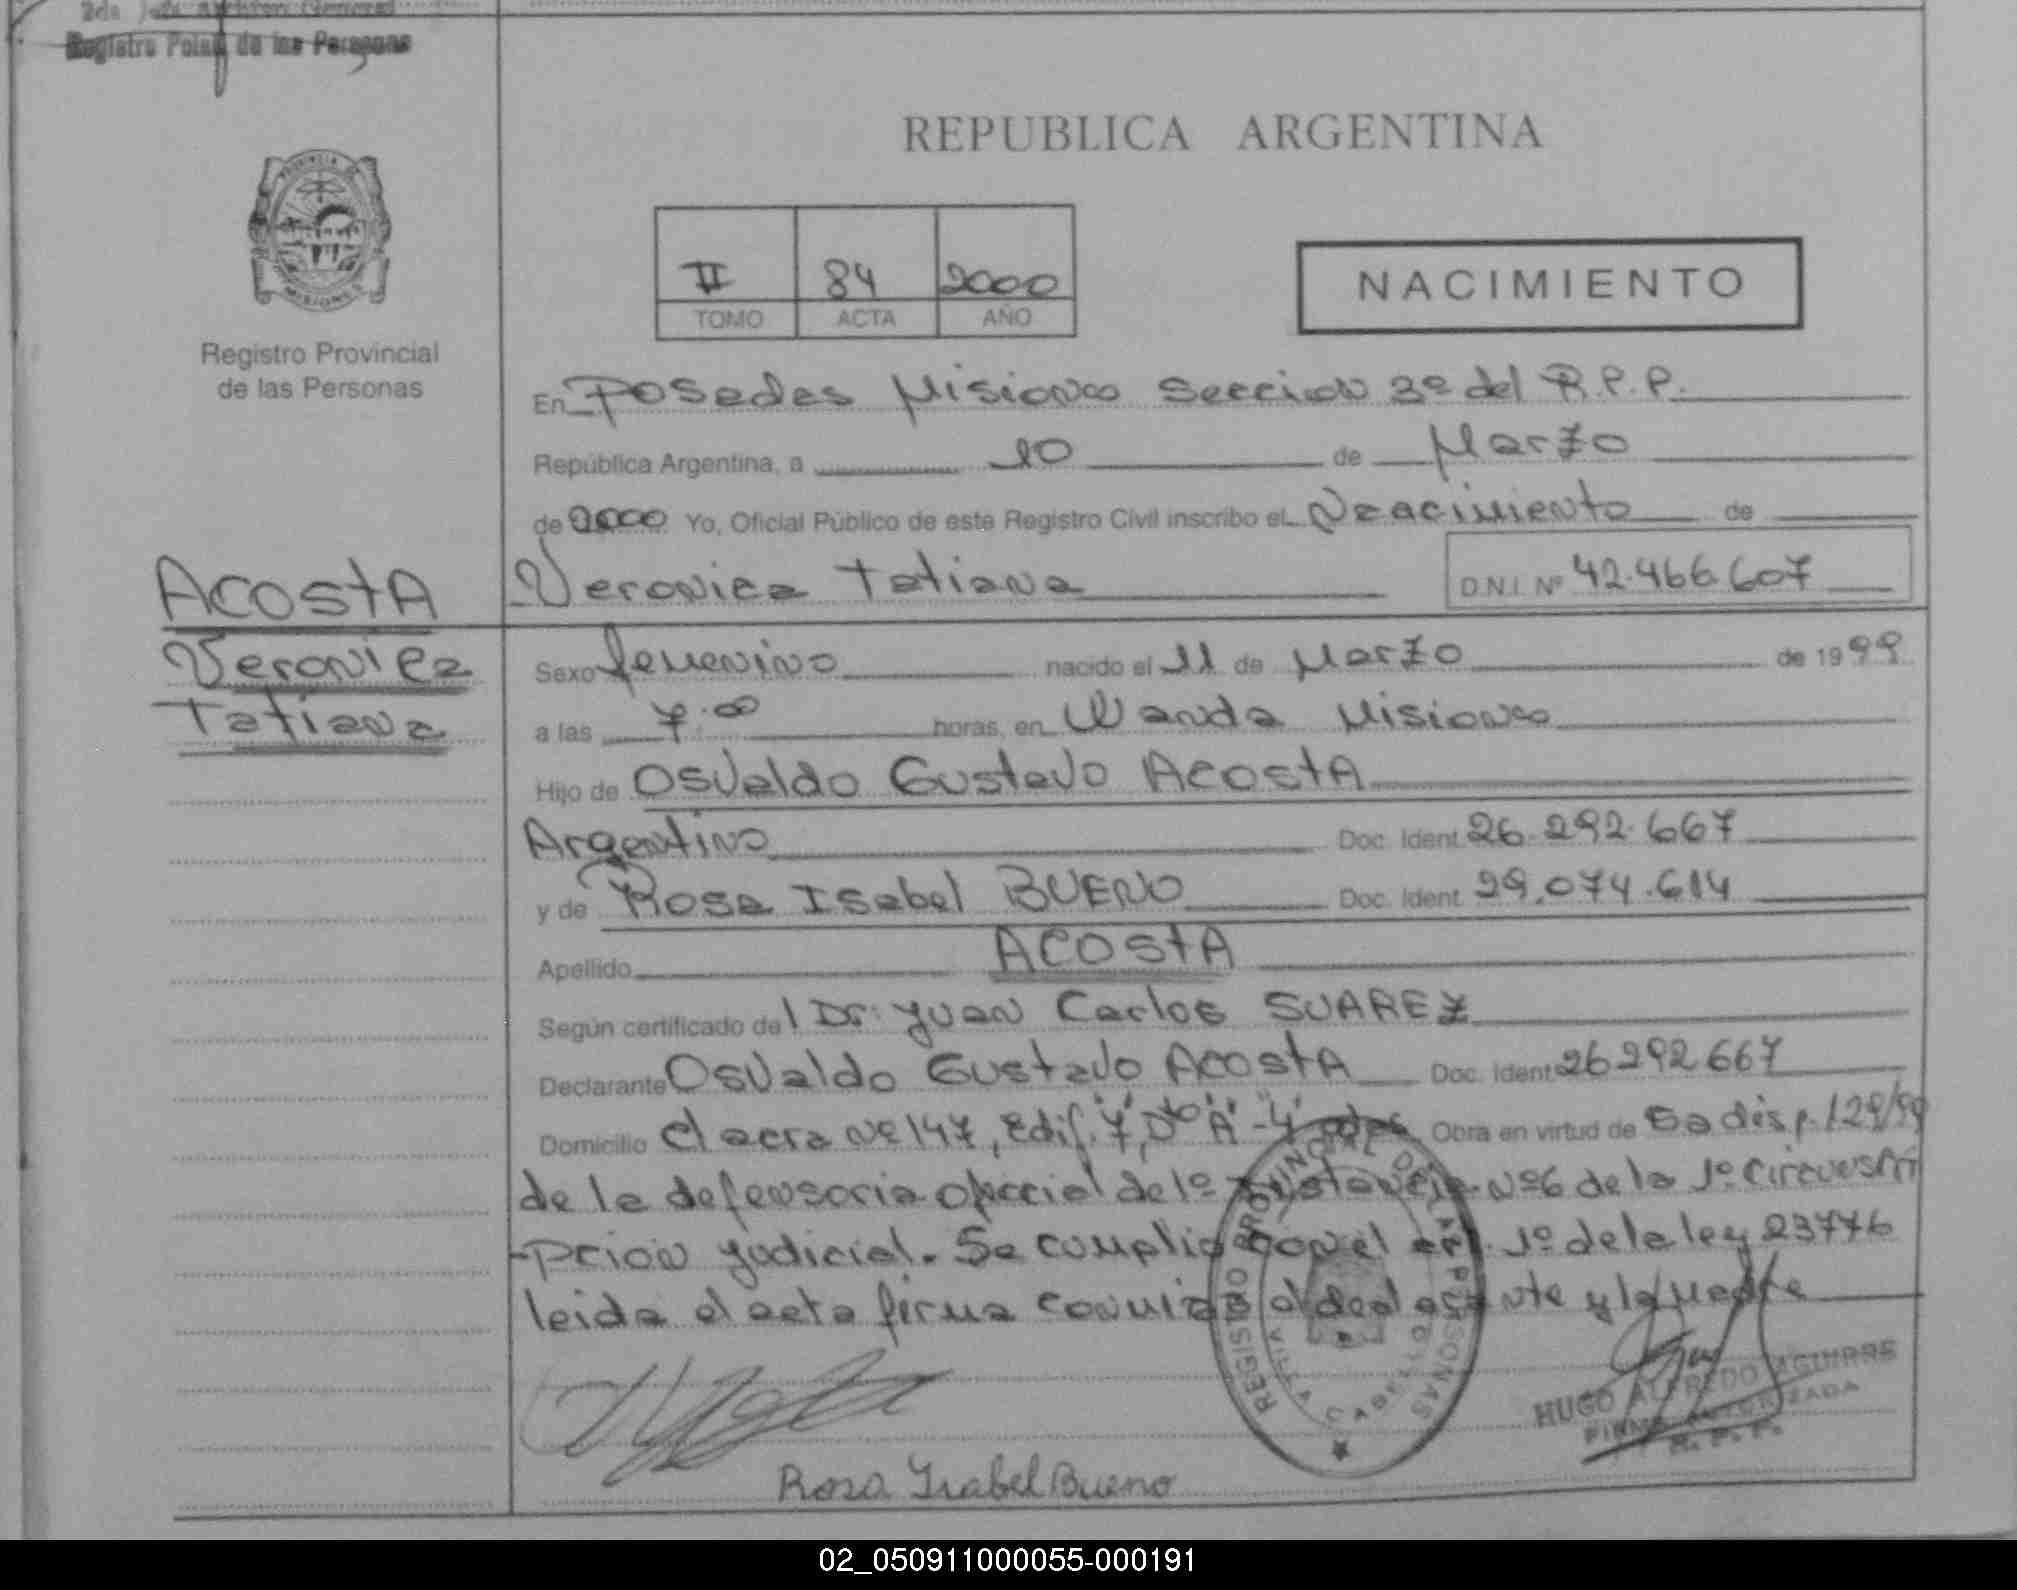 Registro Polaj de las Personas
REPUBLICA ARGENTINA
PROVINCIA DE
MISIONES
Registro Provincial
de las Personas
II 84 2000
TOMO ACTA AÑO
NACIMIENTO
En Posadas Misiones Seccion 3º del R.P.P.
República Argentina, a 10 de Marzo
de 2000 Yo, Oficial Público de este Registro Civil inscribo el Nacimiento de
Veronica Tatiana D.N.I. Nº 42.466.607
ACOSTA
Veronica
Tatiana
Sexo femenino nacido el 11 de Marzo de 1999
a las 7.00 horas, en Wanda Misiones
Hijo de Osvaldo Gustavo ACOSTA
Argentino Doc. Ident. 26.292.667
y de Rosa Isabel BUENO Doc. Ident. 29.074.614
Apellido ACOSTA
Según certificado del Dr. Juan Carlos SUAREZ
Declarante Osvaldo Gustavo ACOSTA Doc. Ident. 26292667
Domicilio chacra Nº 147, Edif. 7, Dto "A" - Obra en virtud de disp. 129/99
de la defensoria oficial de 1º instancia Nº6 de la 1º circunscri
-pcion judicial. Se cumplio con el art. 1º de la ley 23776
leida el acta firma conmigo el declarante y la Madre
REGISTRO PROVINCIAL DE LAS PERSONAS
Rosa Isabel Bueno
HUGO ALFREDO AGUIRRE
FIRMA AUTORIZADA
R. P. P.
02_050911000055-000191